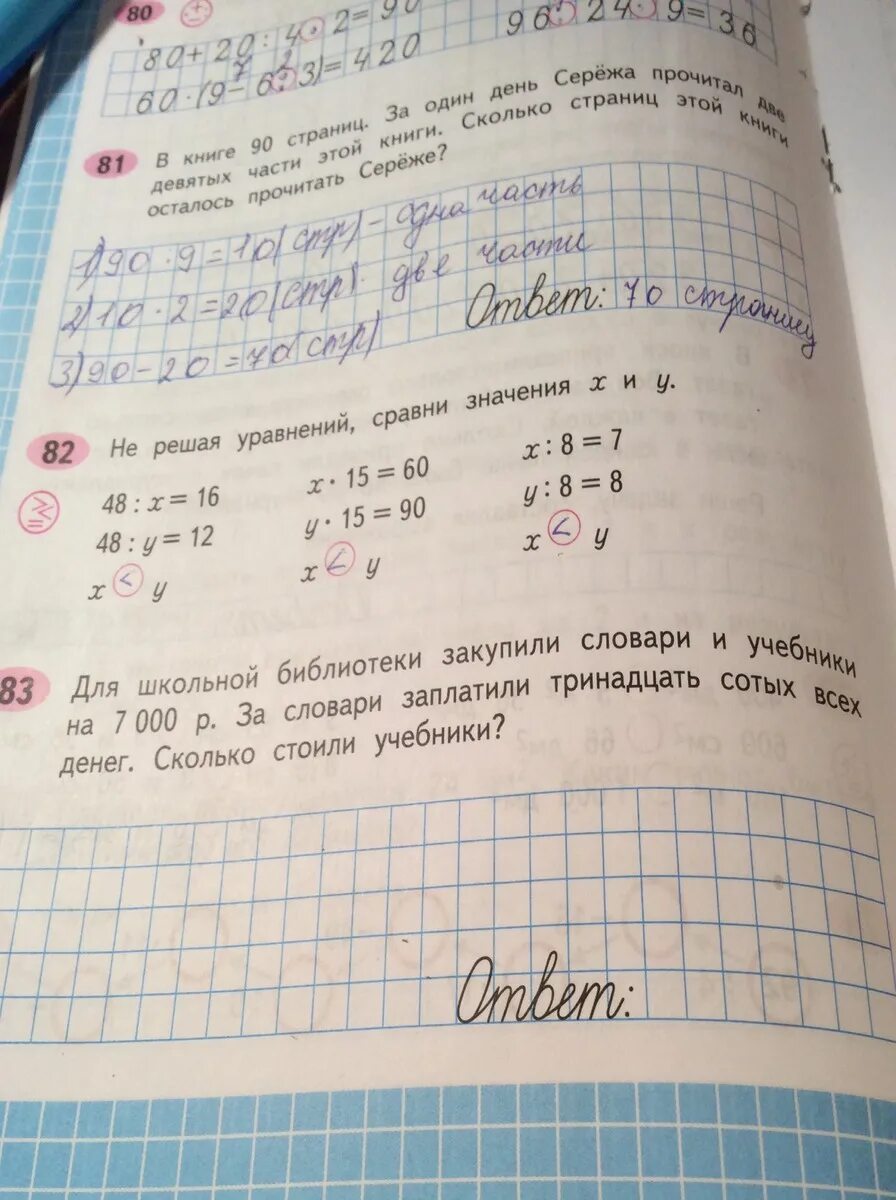 80
80 + 20 : 4 · 2 = 90
96 : 24 · 9 = 36
7 2
60 · (9 - 6 : 3) = 420
81 В книге 90 страниц. За один день Серёжа прочитал две
девятых части этой книги. Сколько страниц этой книги
осталось прочитать Серёже?
1) 90 · 9 = 10 (стр) - одна часть
2) 10 · 2 = 20 (стр). две части
3) 90 - 20 = 70 (стр)
Ответ: 70 страницу
82 Не решая уравнений, сравни значения x и y.
48 : x = 16 x · 15 = 60 x : 8 = 7
48 : y = 12 y · 15 = 90 y : 8 = 8
x < y x < y x < y
83 Для школьной библиотеки закупили словари и учебники
на 7 000 р. За словари заплатили тринадцать сотых всех
денег. Сколько стоили учебники?
Ответ: